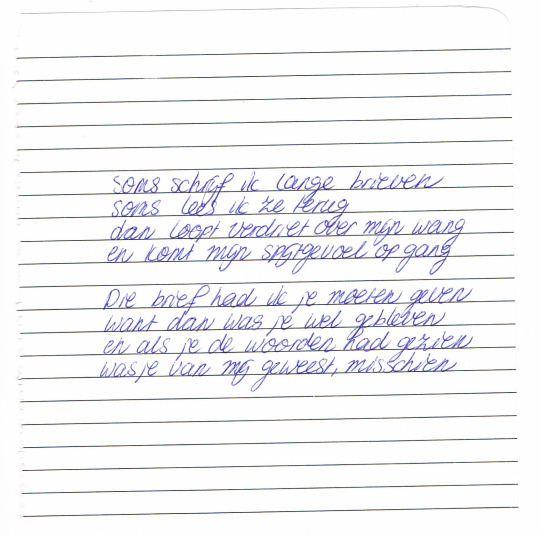 soms schrijf ik lange brieven
soms lees ik ze terug
dan loopt verdriet over mijn wang
en komt mijn spijtgevoel op gang
Die brief had ik je moeten geven
want dan was je wel gebleven
en als je de woorden had gezien
was je van mij geweest, misschien